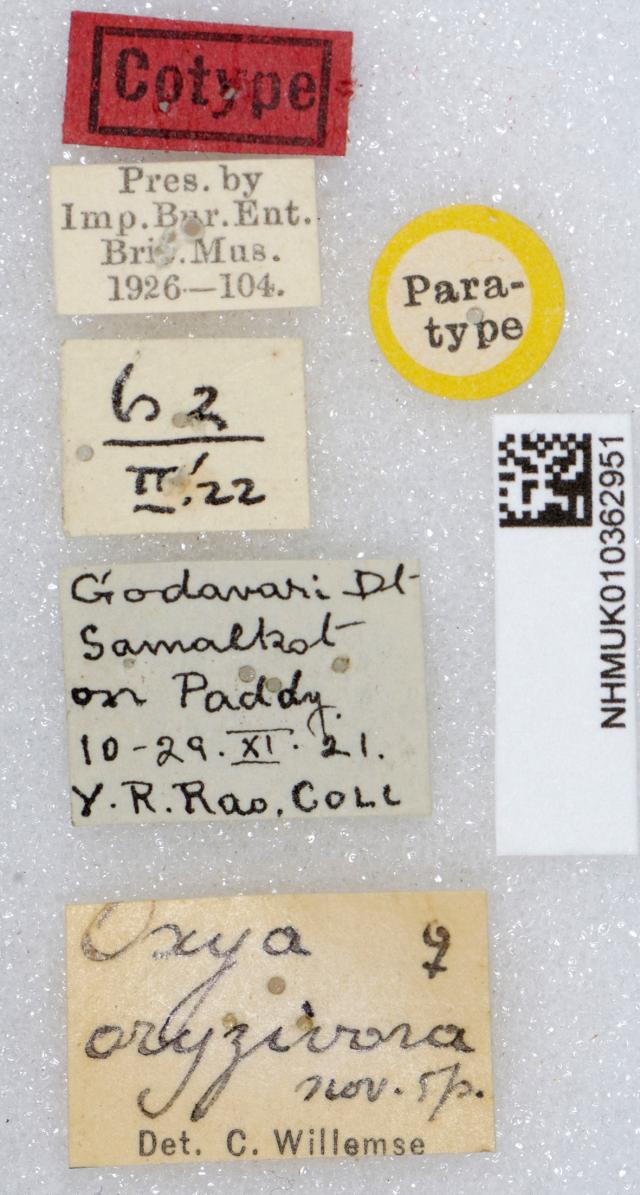 Cotype
Pres. by
Imp.Bur.Ent.
Brit.Mus.
1926—104.
Para-
type
62
II.'22
NHMUK010362951
Godavari Dt
Samalkot
on Paddy.
10-29.XI.21.
Y.R.Rao, COLL
Oxya ♀
oryzivora
nov. sp.
Det. C. Willemse